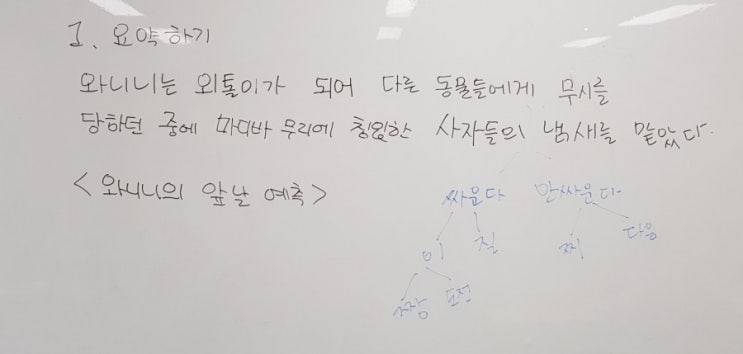 1. 요약하기
와니니는 외톨이가 되어 다른 동물들에게 무시를
당하던 중에 마디바 무리에 침입한 사자들의 냄새를 맡았다.
<와니니의 앞날 예측>
싸운다 안싸운다
이 질 찌 다음
도전